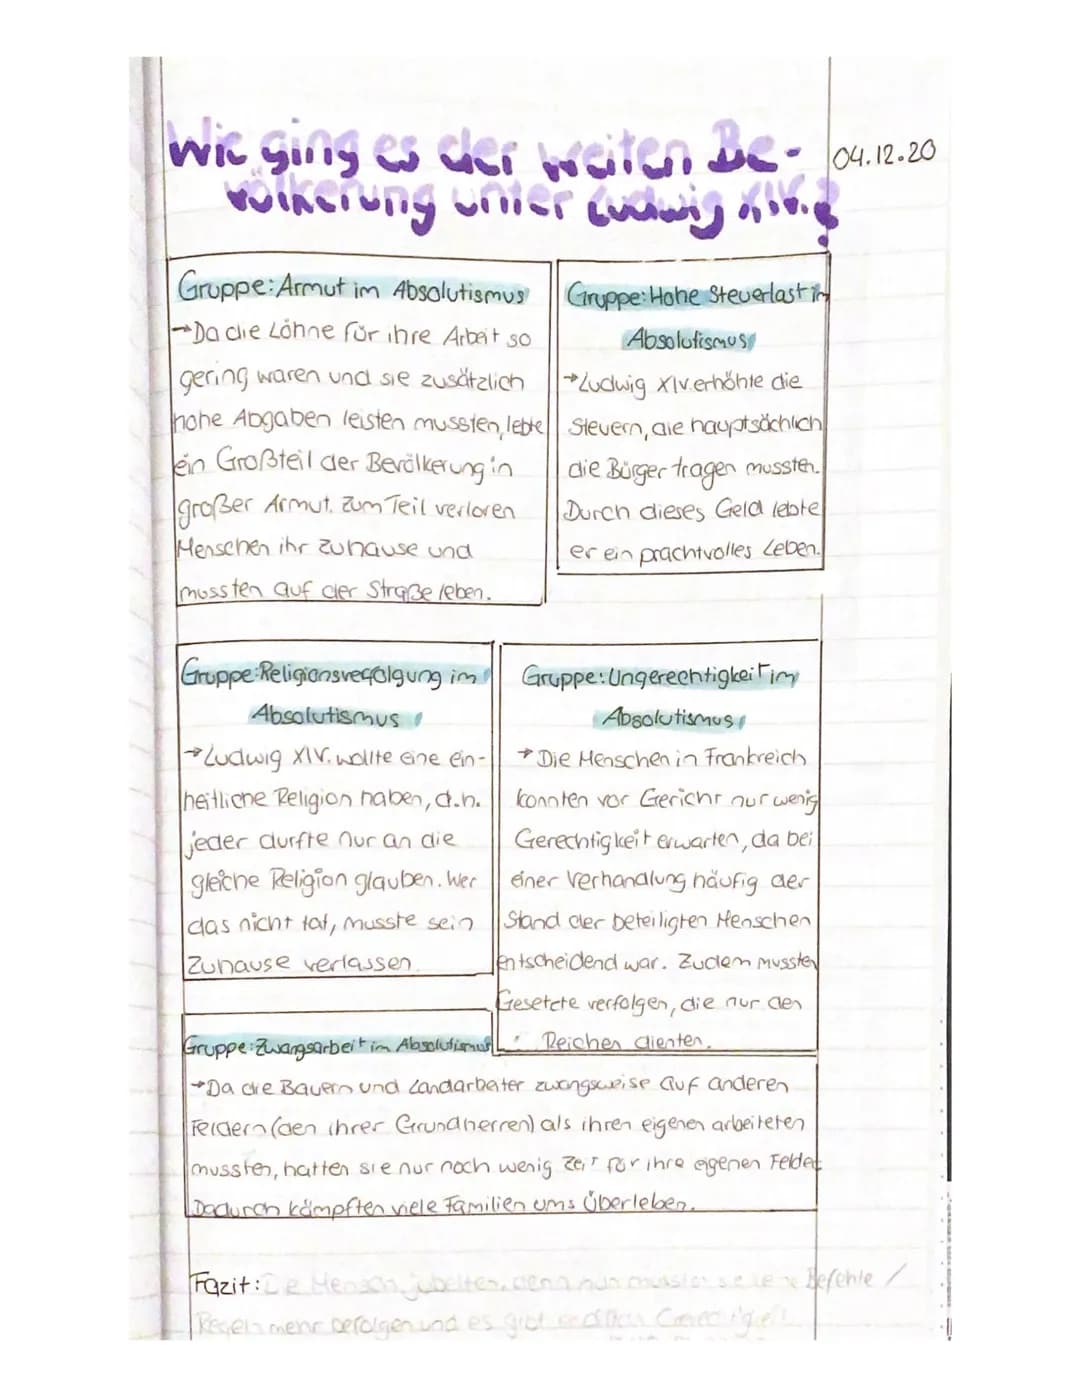 Wie ging es der weiten Be-
völkerung unter Ludwig XIV.?
04.12.20
Gruppe: Armut im Absolutismus
→Da die Löhne für ihre Arbeit so
gering waren und sie zusätzlich
hohe Abgaben leisten mussten, lebte
ein Großteil der Bevölkerung in
großer Armut. Zum Teil verloren
Menschen ihr Zuhause und
mussten auf der Straße leben.
Gruppe: Hohe Steuerlast im
Absolutismus
→Ludwig XIV. erhöhte die
Steuern, die hauptsächlich
die Bürger tragen mussten.
Durch dieses Geld lebte
er ein prachtvolles Leben.
Gruppe: Religionsverfolgung im
Absolutismus
→Ludwig XIV. wollte eine ein-
heitliche Religion haben, d.h.
jeder durfte nur an die
gleiche Religion glauben. Wer
das nicht tat, musste sein
Zuhause verlassen.
Gruppe: Ungerechtigkeit im
Absolutismus
→ Die Menschen in Frankreich
konnten vor Gericht nur wenig
Gerechtigkeit erwarten, da bei
einer Verhandlung häufig der
Stand der beteiligten Menschen
entscheidend war. Zudem mussten
Gesetzte verfolgen, die nur den
Reichen dienten.
Gruppe: Zwangsarbeit im Absolutismus
→Da die Bauern und Landarbeiter zwangsweise auf anderen
Feldern (den ihrer Grundherren) als ihren eigenen arbeiteten
mussten, hatten sie nur noch wenig Zeit für ihre eigenen Felder
Dadurch kämpften viele Familien ums Überleben.
Fazit: Die Mensch jubelten, denn nun mussten sie Befehle /
Regeln mehr befolgen und es gibt